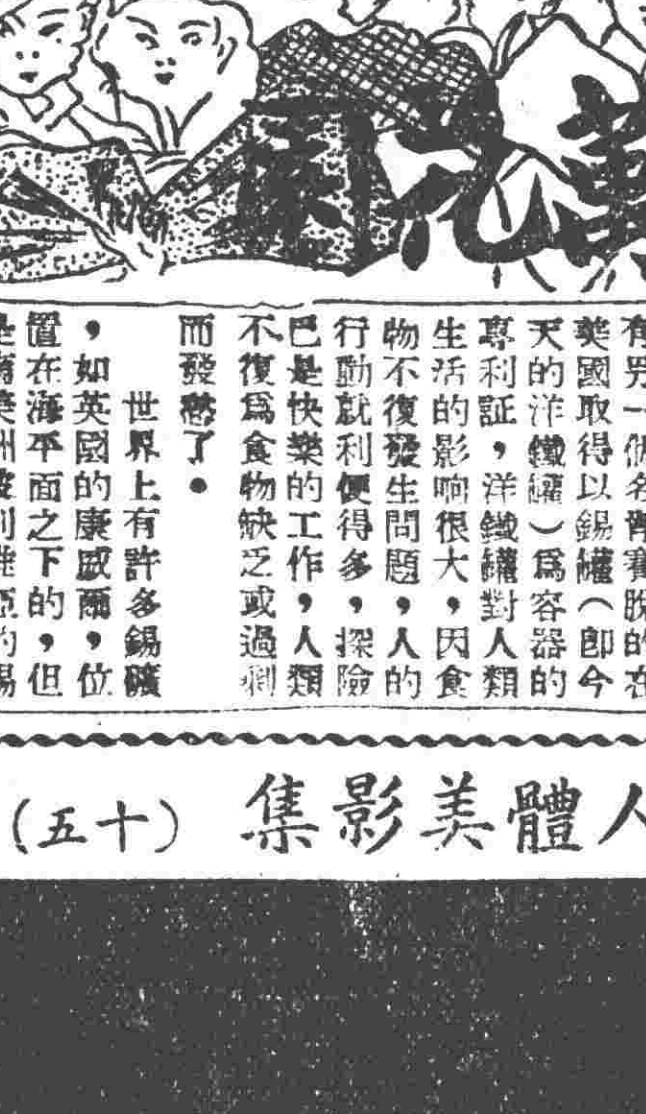 有另一個名肯賽脫的在
英國取得以錫罐（即今
天的洋鐵罐）爲容器的
專利証，洋鐵罐對人類
生活的影响很大，因食
物不復發生問題，人的
行動就利便得多，探險
巴是快樂的工作，人類
不復爲食物缺乏或過剩
而發愁了。
世界上有許多錫礦
，如英國的康威爾，位
置在海平面之下的，但
人體美影集（十五）